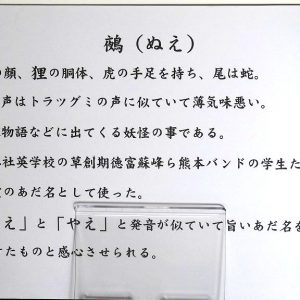 鵺（ぬえ）
の顔、狸の胴体、虎の手足を持ち、尾は蛇。
声はトラツグミの声に似ていて薄気味悪い。
物語などに出てくる妖怪の事である。
社英学校の草創期徳富蘇峰ら熊本バンドの学生た
のあだ名として使った。
え」と「やえ」と発音が似ていて旨いあだ名を
たものと感心させられる。